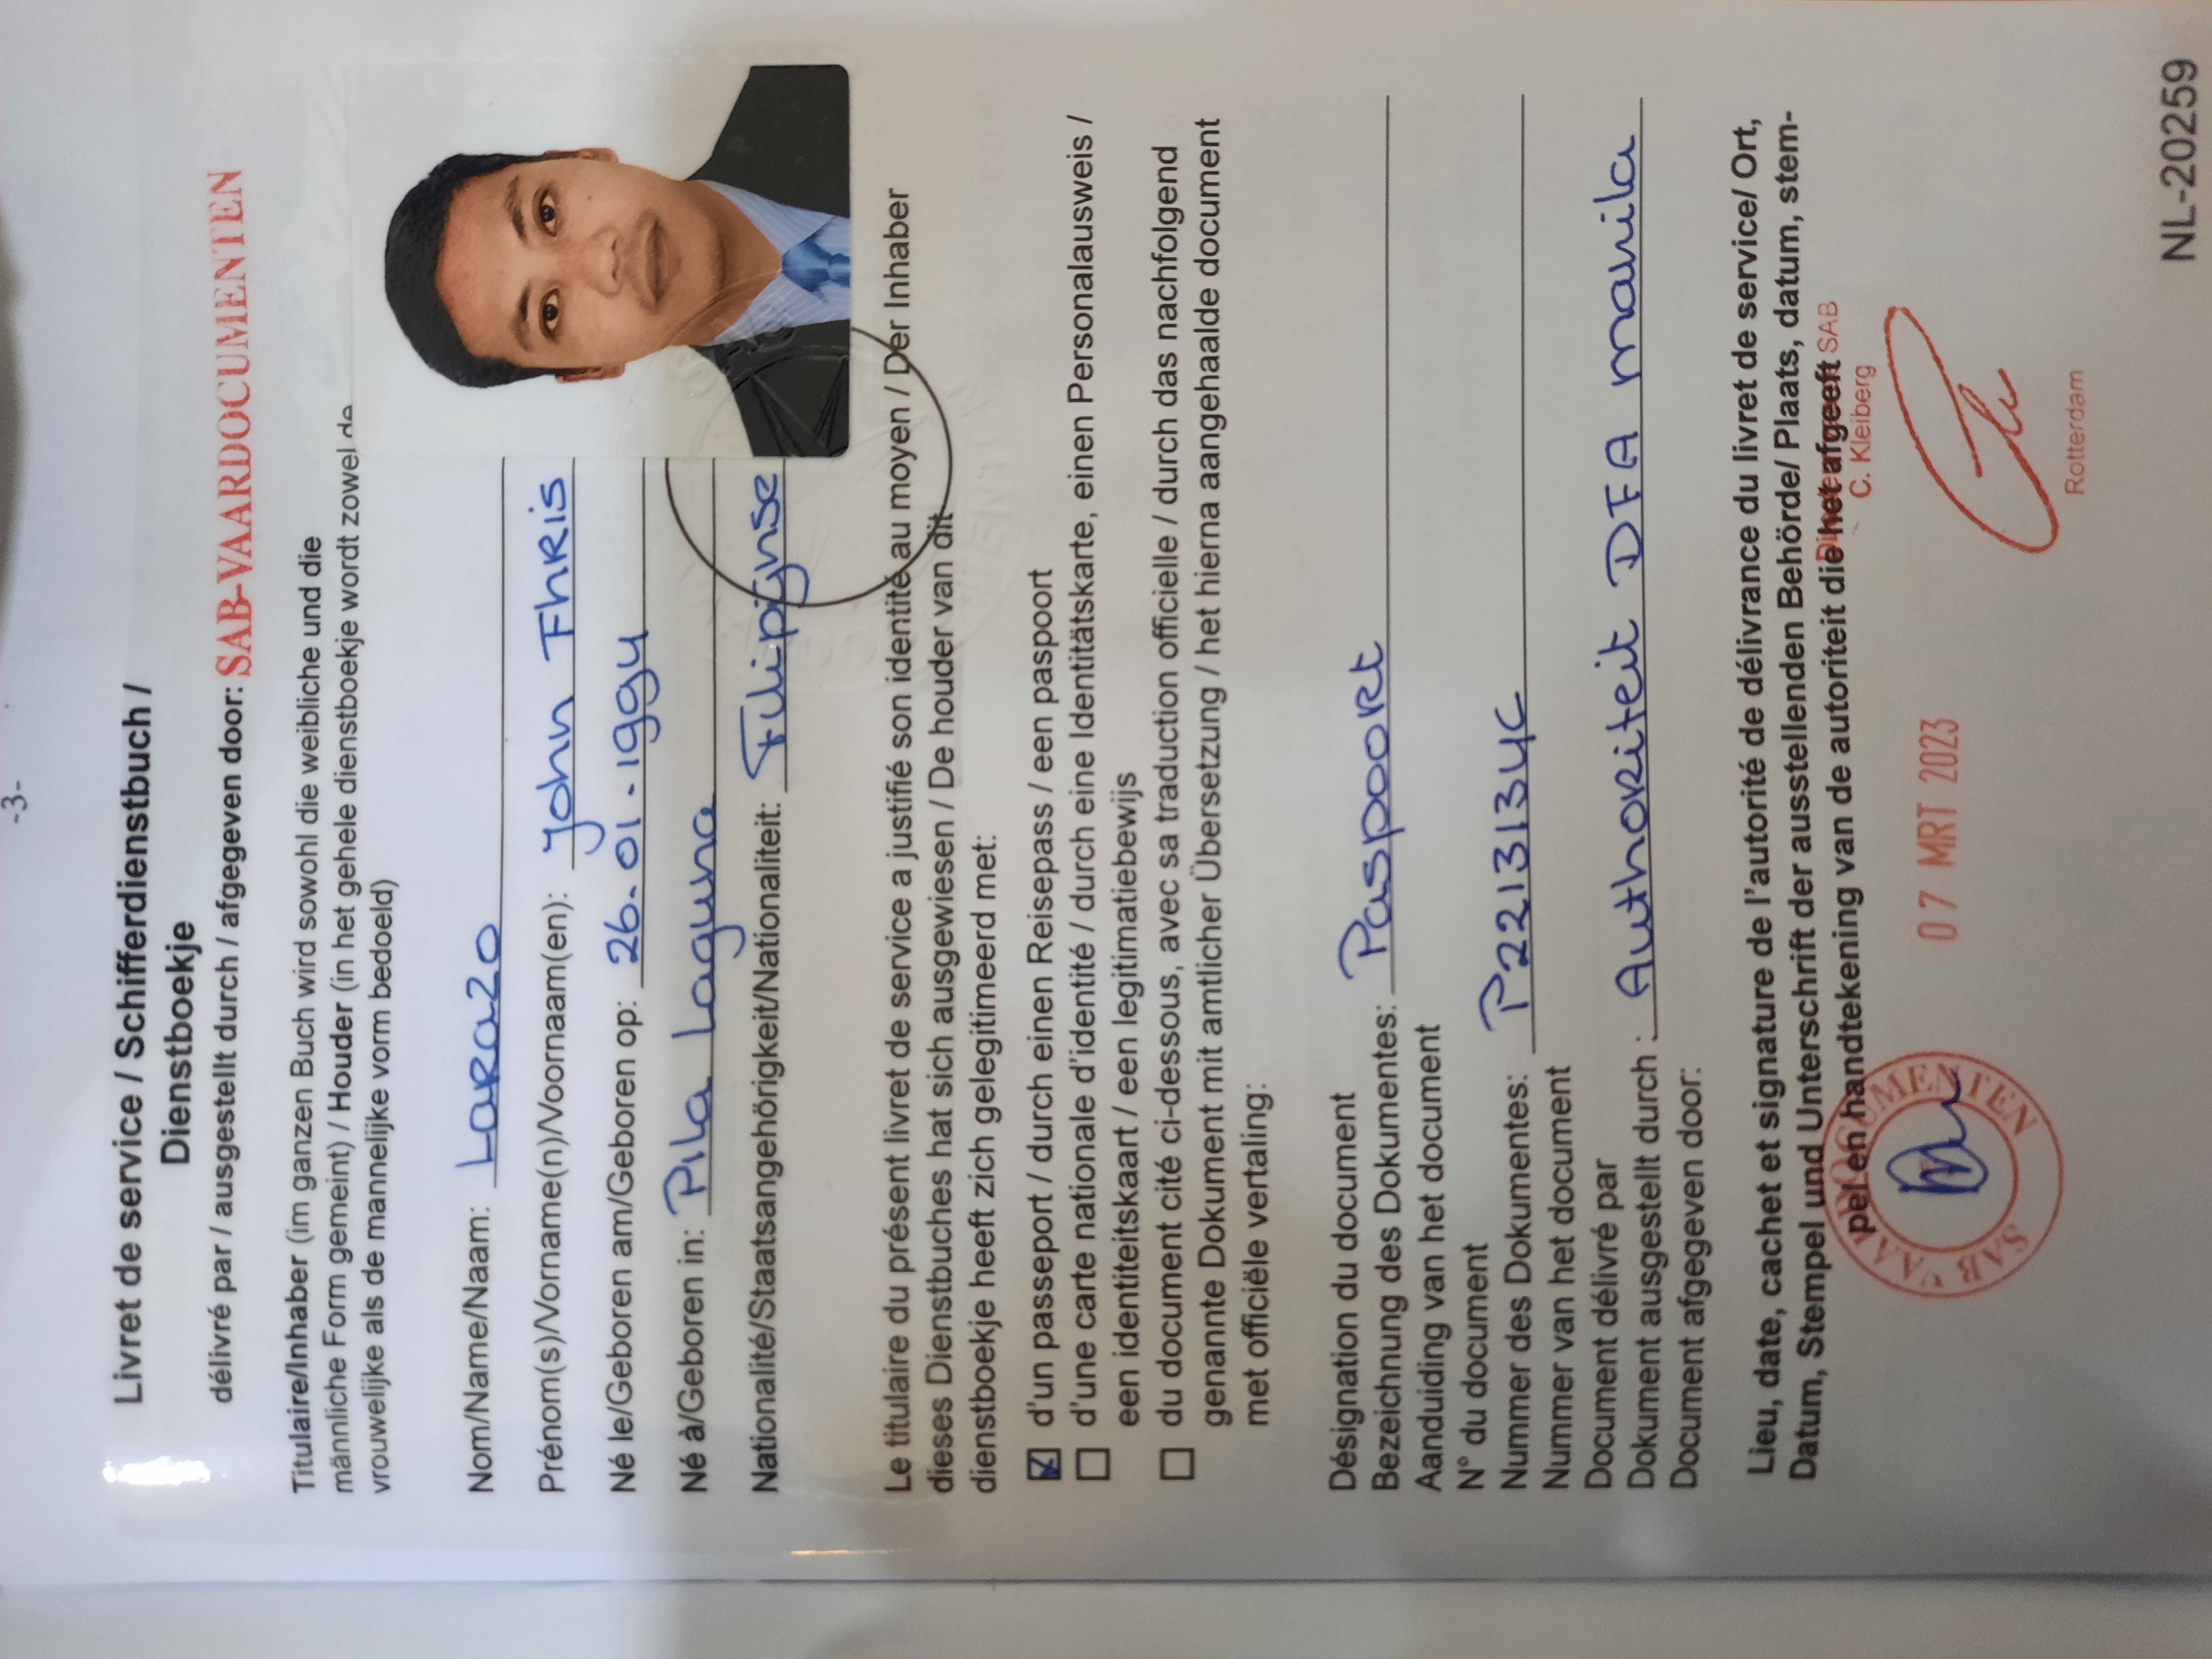 -3-
Livret de service / Schifferdienstbuch /
Dienstboekje
délivré par / ausgestellt durch / afgegeven door: SAB-VAARDOCUMENTEN
Titulaire/Inhaber (im ganzen Buch wird sowohl die weibliche und die
männliche Form gemeint) / Houder (in het gehele dienstboekje wordt zowel de
vrouwelijke als de mannelijke vorm bedoeld)
Nom/Name/Naam: Larazo
Prénom(s)/Vorname(n)/Voornaam(en): John Fhris
Né le/Geboren am/Geboren op: 26-01-1994
Né à/Geboren in: Pila Laguna
Nationalité/Staatsangehörigkeit/Nationaliteit: Filipijnse
Le titulaire du présent livret de service a justifié son identité au moyen / Der Inhaber
dieses Dienstbuches hat sich ausgewiesen / De houder van dit
dienstboekje heeft zich gelegitimeerd met:
d'un passeport / durch einen Reisepass / een paspoort
d'une carte nationale d'identité / durch eine Identitätskarte, einen Personalausweis /
een identiteitskaart / een legitimatiebewijs
du document cité ci-dessous, avec sa traduction officielle / durch das nachfolgend
genannte Dokument mit amtlicher Übersetzung / het hierna aangehaalde document
met officiële vertaling:
Désignation du document
Bezeichnung des Dokumentes: Paspoort
Aanduiding van het document
N° du document
Nummer des Dokumentes: P2213134C
Nummer van het document
Document délivré par
Dokument ausgestellt durch : Authoriteit DFA manila
Document afgegeven door:
Lieu, date, cachet et signature de l'autorité de délivrance du livret de service/ Ort,
Datum, Stempel und Unterschrift der ausstellenden Behörde/ Plaats, datum, stem-
pel en handtekening van de autoriteit die het afgeeft
SAB
C. Kleiberg
SAB VAARDOCUMENTEN
07 MRT 2023
Rotterdam
NL-20259